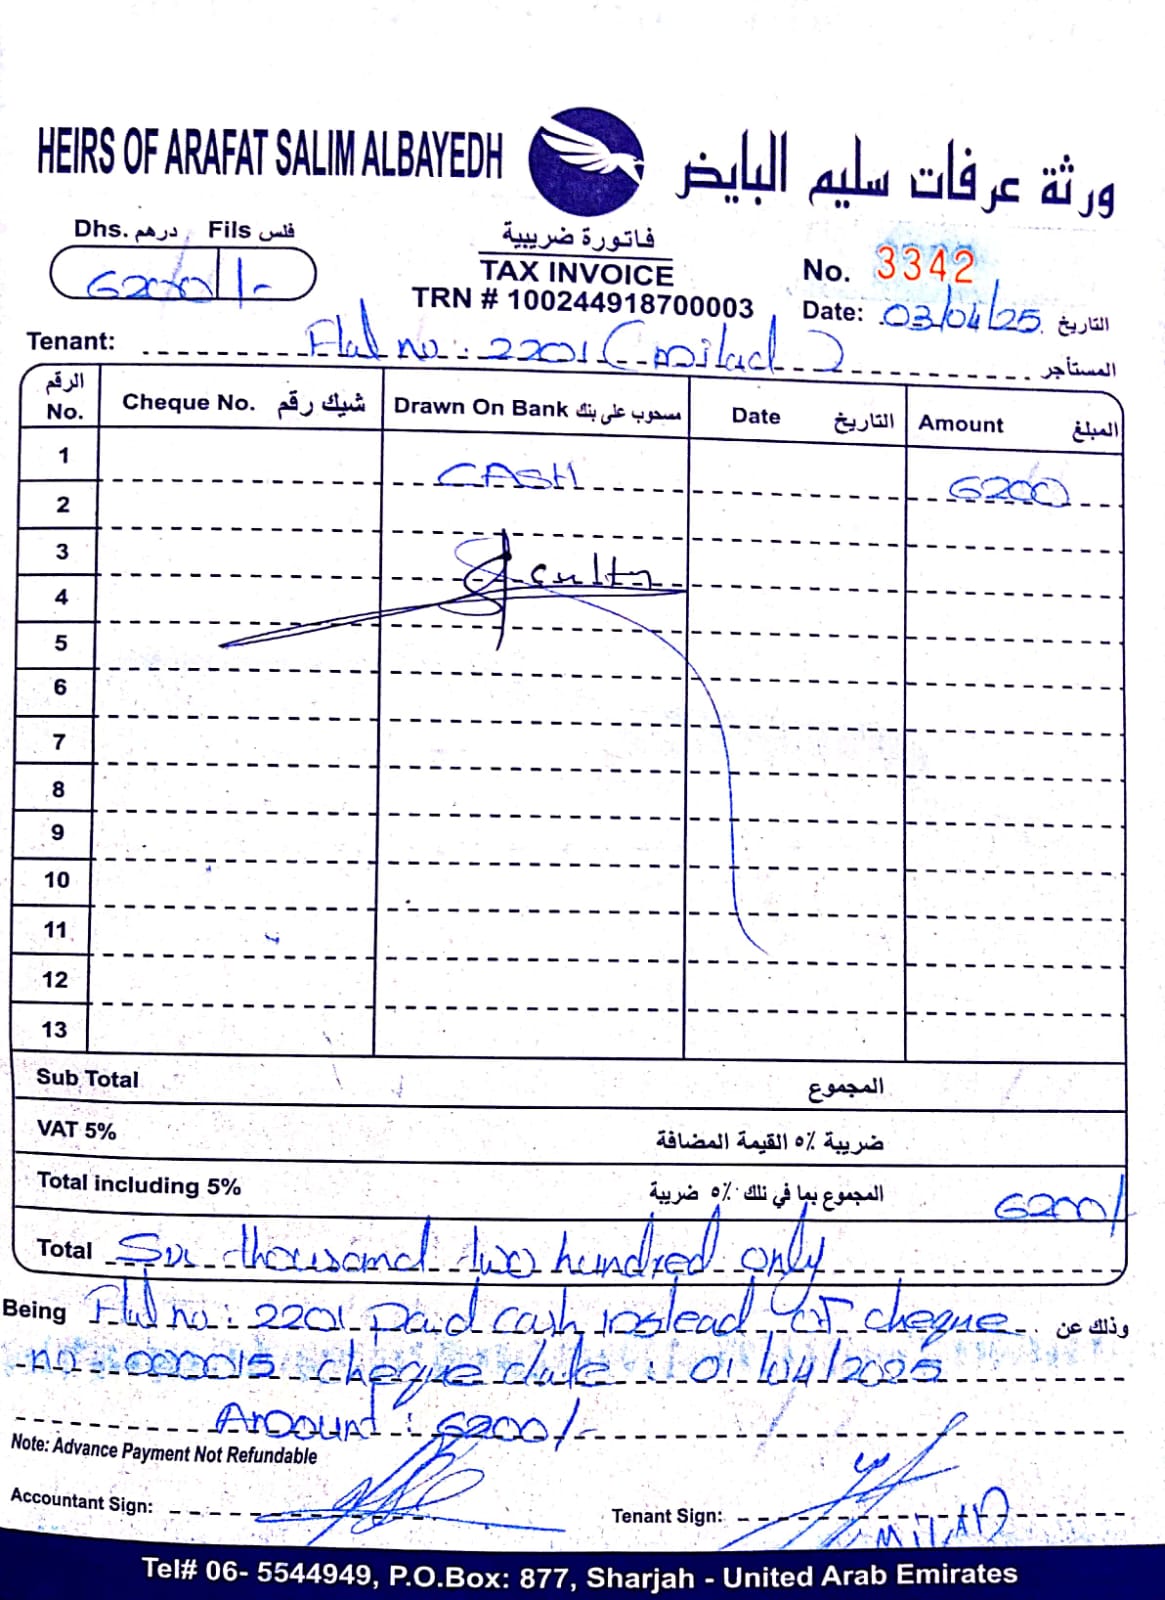 HEIRS OF ARAFAT SALIM ALBAYEDH
ورثة عرفات سليم البايض
Dhs. درهم Fils فلس
6200 /-
فاتورة ضريبية
TAX INVOICE
TRN # 100244918700003
No. 3342
Date: 03/04/25 التاريخ
Tenant: Flat no: 2201 (milad) المستأجر
الرقم No. Cheque No. شيك رقم Drawn On Bank مسحوب على بنك Date التاريخ Amount المبلغ
1 CASH 6200
2
3
4
5
6
7
8
9
10
11
12
13
Sub Total المجموع
VAT 5% ضريبة ٥٪ القيمة المضافة
Total including 5% المجموع بما في ذلك ٥٪ ضريبة 6200/
Total Six thousand two hundred only
Being Flat no: 2201 paid cash instead of cheque وذلك عن
no: 000015 cheque date: 01/04/2025
Amount: 6200/-
Note: Advance Payment Not Refundable
Accountant Sign:
Tenant Sign: MILAD
Tel# 06- 5544949, P.O.Box: 877, Sharjah - United Arab Emirates